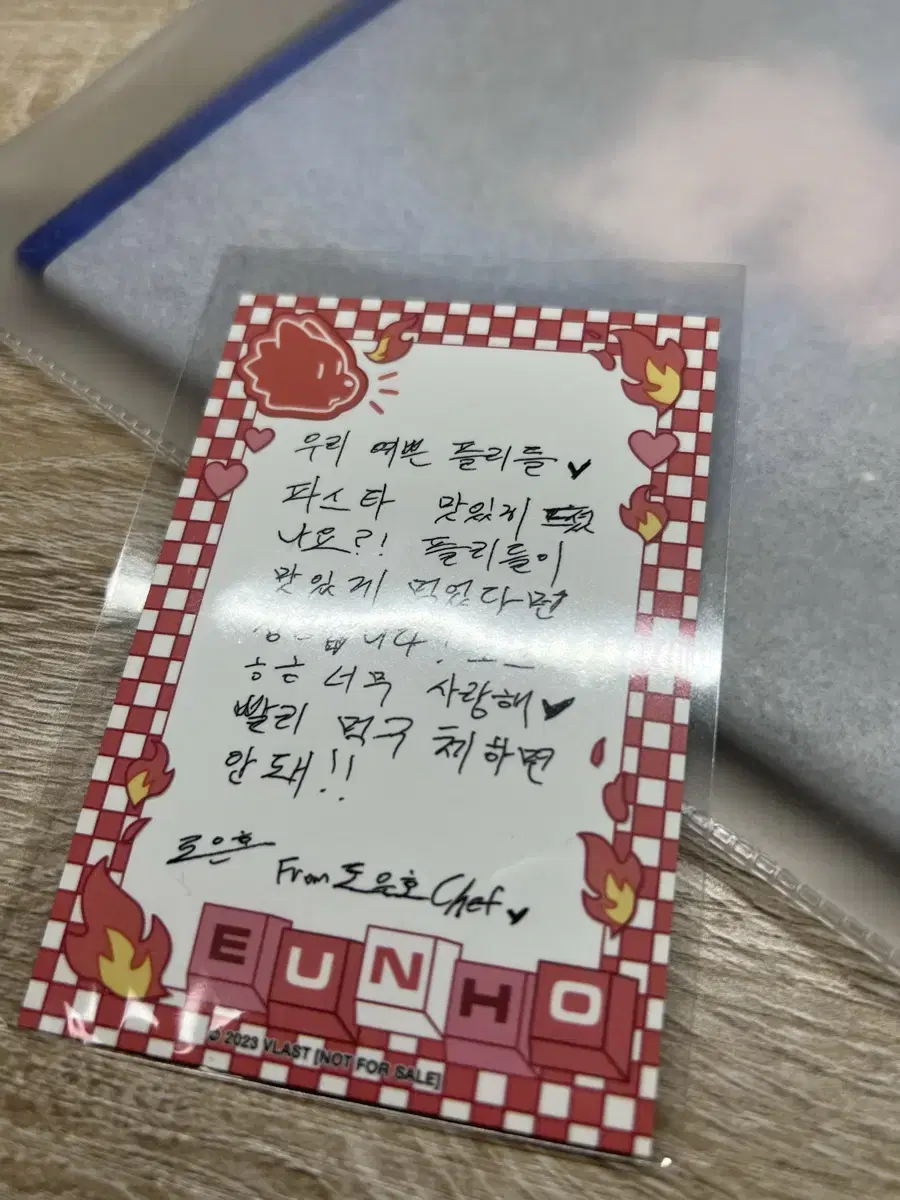 우리 예쁜 플리들 ♥
파스타 맛있게 드셨
나요?! 플리들이
맛있게 먹었다면
ㅎㅎ 너무 사랑해 ♥
빨리 먹구 체하면
안 돼!!
From 도은호 Chef ♥
EUNHO
© 2023 VLAST [NOT FOR SALE]